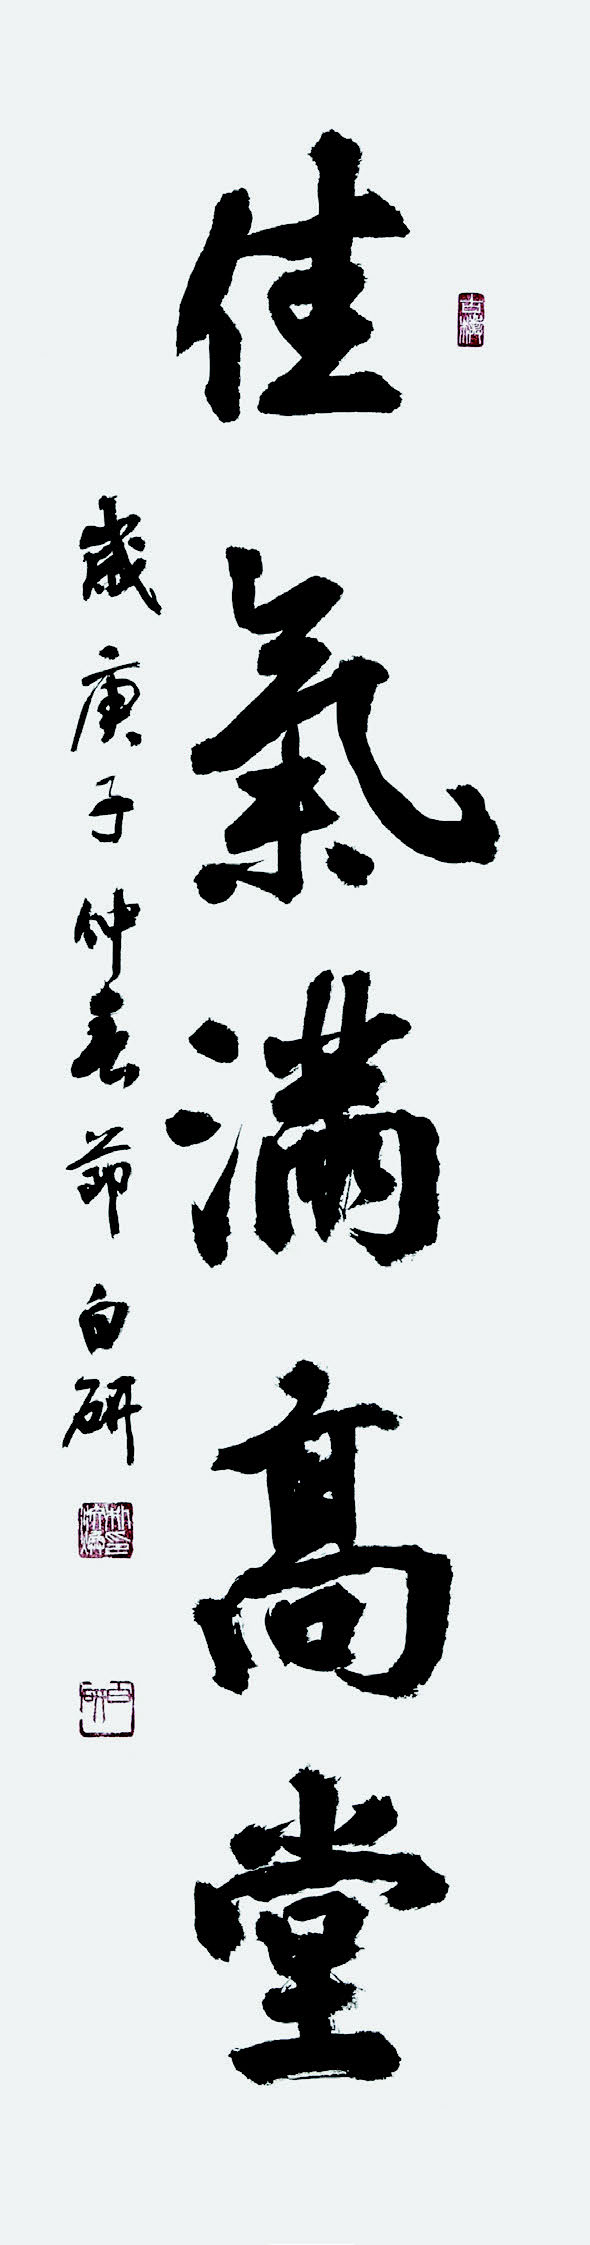 佳氣滿高堂
歲庚子仲春節白研